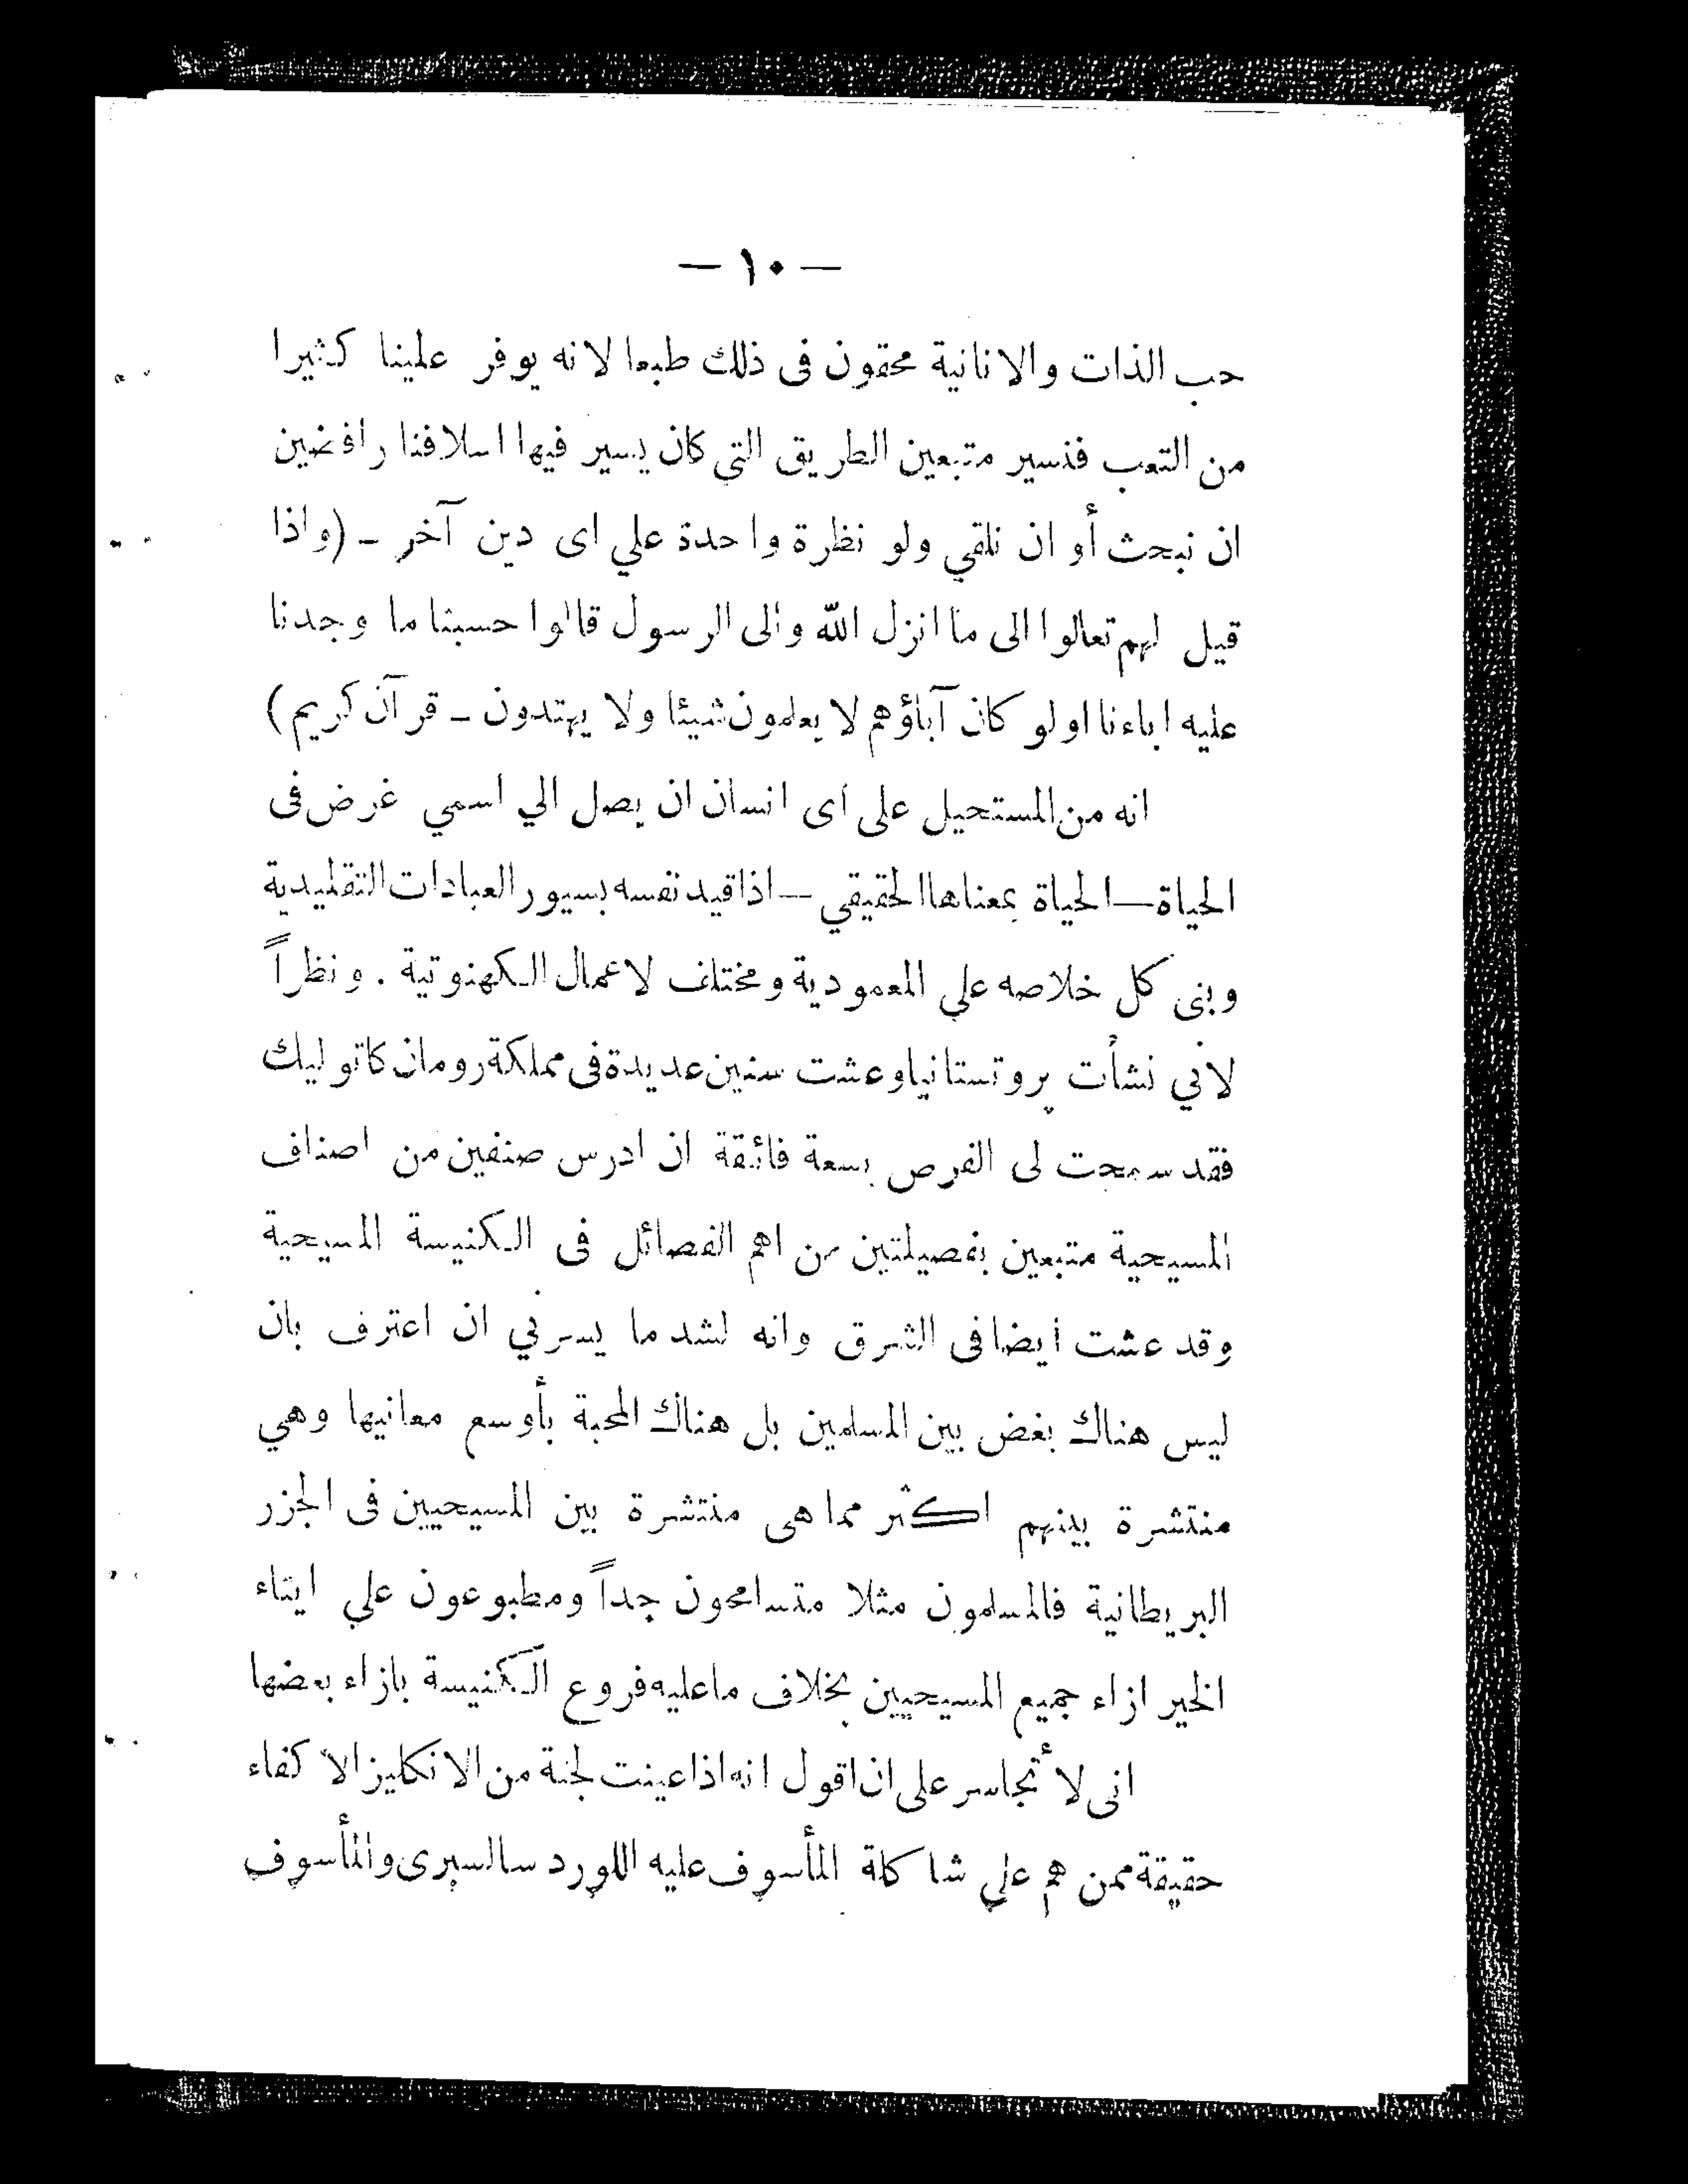 — ١٠ —
حب الذات والانانية محقون فى ذلك طبعا لانه يوفر علينا كثيرا
من التعب فنسير متبعين الطريق التي كان يسير فيها اسلافنا رافضين
ان نبحث أو ان نلقي ولو نظرة واحدة علي اى دين آخر – (واذا
قيل لهم تعالوا الى ما انزل الله والى الرسول قالوا حسبنا ما وجدنا
عليه اباءنا اولو كان آباؤهم لا يعلمون شيئا ولا يهتدون – قرآن كريم)
انه من المستحيل على اى انسان ان يصل الي اسمي غرض فى
الحياة—الحياة بمعناها الحقيقي —اذا قيد نفسه بسيور العبادات التقليدية
وبنى كل خلاصه علي المعمودية ومختلف لاعمال الكهنوتية . ونظراً
لأني نشأت بروتستانيا وعشت سنين عديدة فى مملكة رومان كاتوليك
فقد سمحت لى الفرص بسعة فائقة ان ادرس صنفين من اصناف
المسيحية متبعين بفصيلتين من اهم الفصائل فى الكنيسة المسيحية
وقد عشت أيضا فى الشرق وانه لشد ما يسرني ان اعترف بان
ليس هناك بغض بين المسلمين بل هناك المحبة بأوسع معانيها وهي
منتشرة بينهم اكثر مما هى منتشرة بين المسيحيين فى الجزر
البريطانية فالمسلمون مثلا متسامحون جداً ومطبوعون علي ايتاء
الخير ازاء جميع المسيحيين بخلاف ما عليه فروع الكنيسة بازاء بعضها
انى لا أتجاسر على ان اقول انه اذا عينت لجنة من الانكليز الا كفاء
حقيقة ممن هم علي شاكلة المأسوف عليه اللورد سالسبرى والمأسوف